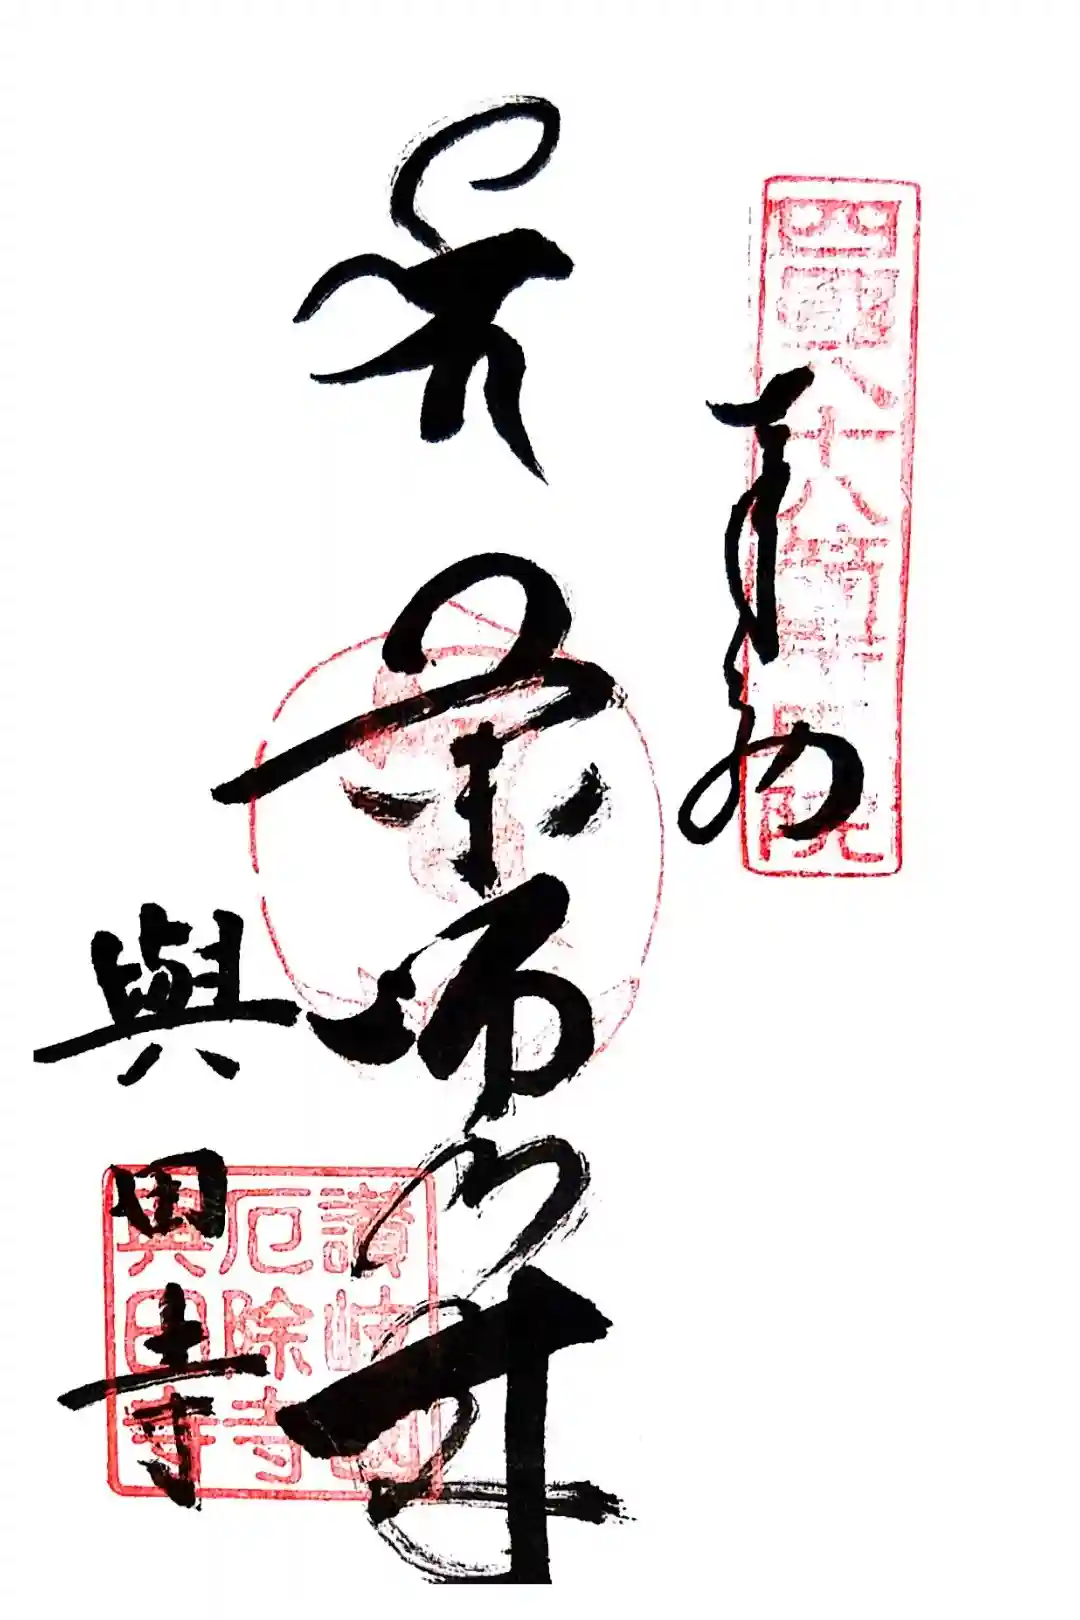 四國八十八箇所奥院
奉拝
薬師
與田寺
讃岐國
厄除寺
與田寺